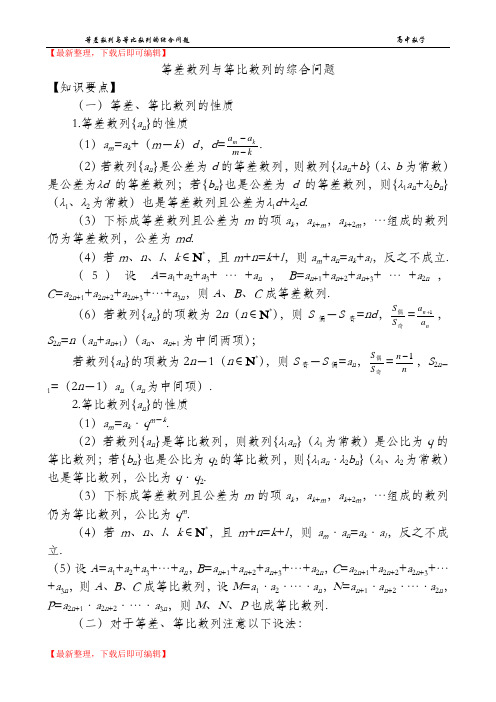 等差数列与等比数列的综合问题 高中数学
【最新整理,下载后即可编辑】
等差数列与等比数列的综合问题
【知识要点】
(一)等差、等比数列的性质
1.等差数列{aₙ}的性质
(1)aₘ=aₖ+(m-k)d,d=(aₘ-aₖ)/(m-k).
(2)若数列{aₙ}是公差为d的等差数列,则数列{λaₙ+b}(λ、b为常数)
是公差为λd的等差数列;若{bₙ}也是公差为d的等差数列,则{λ₁aₙ+λ₂bₙ}
(λ₁、λ₂为常数)也是等差数列且公差为λ₁d+λ₂d.
(3)下标成等差数列且公差为m的项aₖ,aₖ₊ₘ,aₖ₊₂ₘ,…组成的数列
仍为等差数列,公差为md.
(4)若m、n、l、k∈N*,且m+n=k+l,则aₘ+aₙ=aₖ+aₗ,反之不成立.
(5)设A=a₁+a₂+a₃+…+aₙ,B=aₙ₊₁+aₙ₊₂+aₙ₊₃+…+a₂ₙ,
C=a₂ₙ₊₁+a₂ₙ₊₂+a₂ₙ₊₃+…+a₃ₙ,则A、B、C成等差数列.
(6)若数列{aₙ}的项数为2n(n∈N*),则S偶-S奇=nd,S偶/S奇=aₙ₊₁/aₙ,
S₂ₙ=n(aₙ+aₙ₊₁)(aₙ、aₙ₊₁为中间两项);
若数列{aₙ}的项数为2n-1(n∈N*),则S奇-S偶=aₙ,S偶/S奇=(n-1)/n,S₂ₙ₋
₁=(2n-1)aₙ(aₙ为中间项).
2.等比数列{aₙ}的性质
(1)aₘ=aₖ·qᵐ⁻ᵏ.
(2)若数列{aₙ}是等比数列,则数列{λ₁aₙ}(λ₁为常数)是公比为q的
等比数列;若{bₙ}也是公比为q₂的等比数列,则{λ₁aₙ·λ₂bₙ}(λ₁、λ₂为常数)
也是等比数列,公比为q·q₂.
(3)下标成等差数列且公差为m的项aₖ,aₖ₊ₘ,aₖ₊₂ₘ,…组成的数列
仍为等比数列,公比为qᵐ.
(4)若m、n、l、k∈N*,且m+n=k+l,则aₘ·aₙ=aₖ·aₗ,反之不成
立.
(5)设A=a₁+a₂+a₃+…+aₙ,B=aₙ₊₁+aₙ₊₂+aₙ₊₃+…+a₂ₙ,C=a₂ₙ₊₁+a₂ₙ₊₂+a₂ₙ₊₃+…
+a₃ₙ,则A、B、C成等比数列,设M=a₁·a₂·…·aₙ,N=aₙ₊₁·aₙ₊₂·…·a₂ₙ,
P=a₂ₙ₊₁·a₂ₙ₊₂·…·a₃ₙ,则M、N、P也成等比数列.
(二)对于等差、等比数列注意以下设法:
【最新整理,下载后即可编辑】